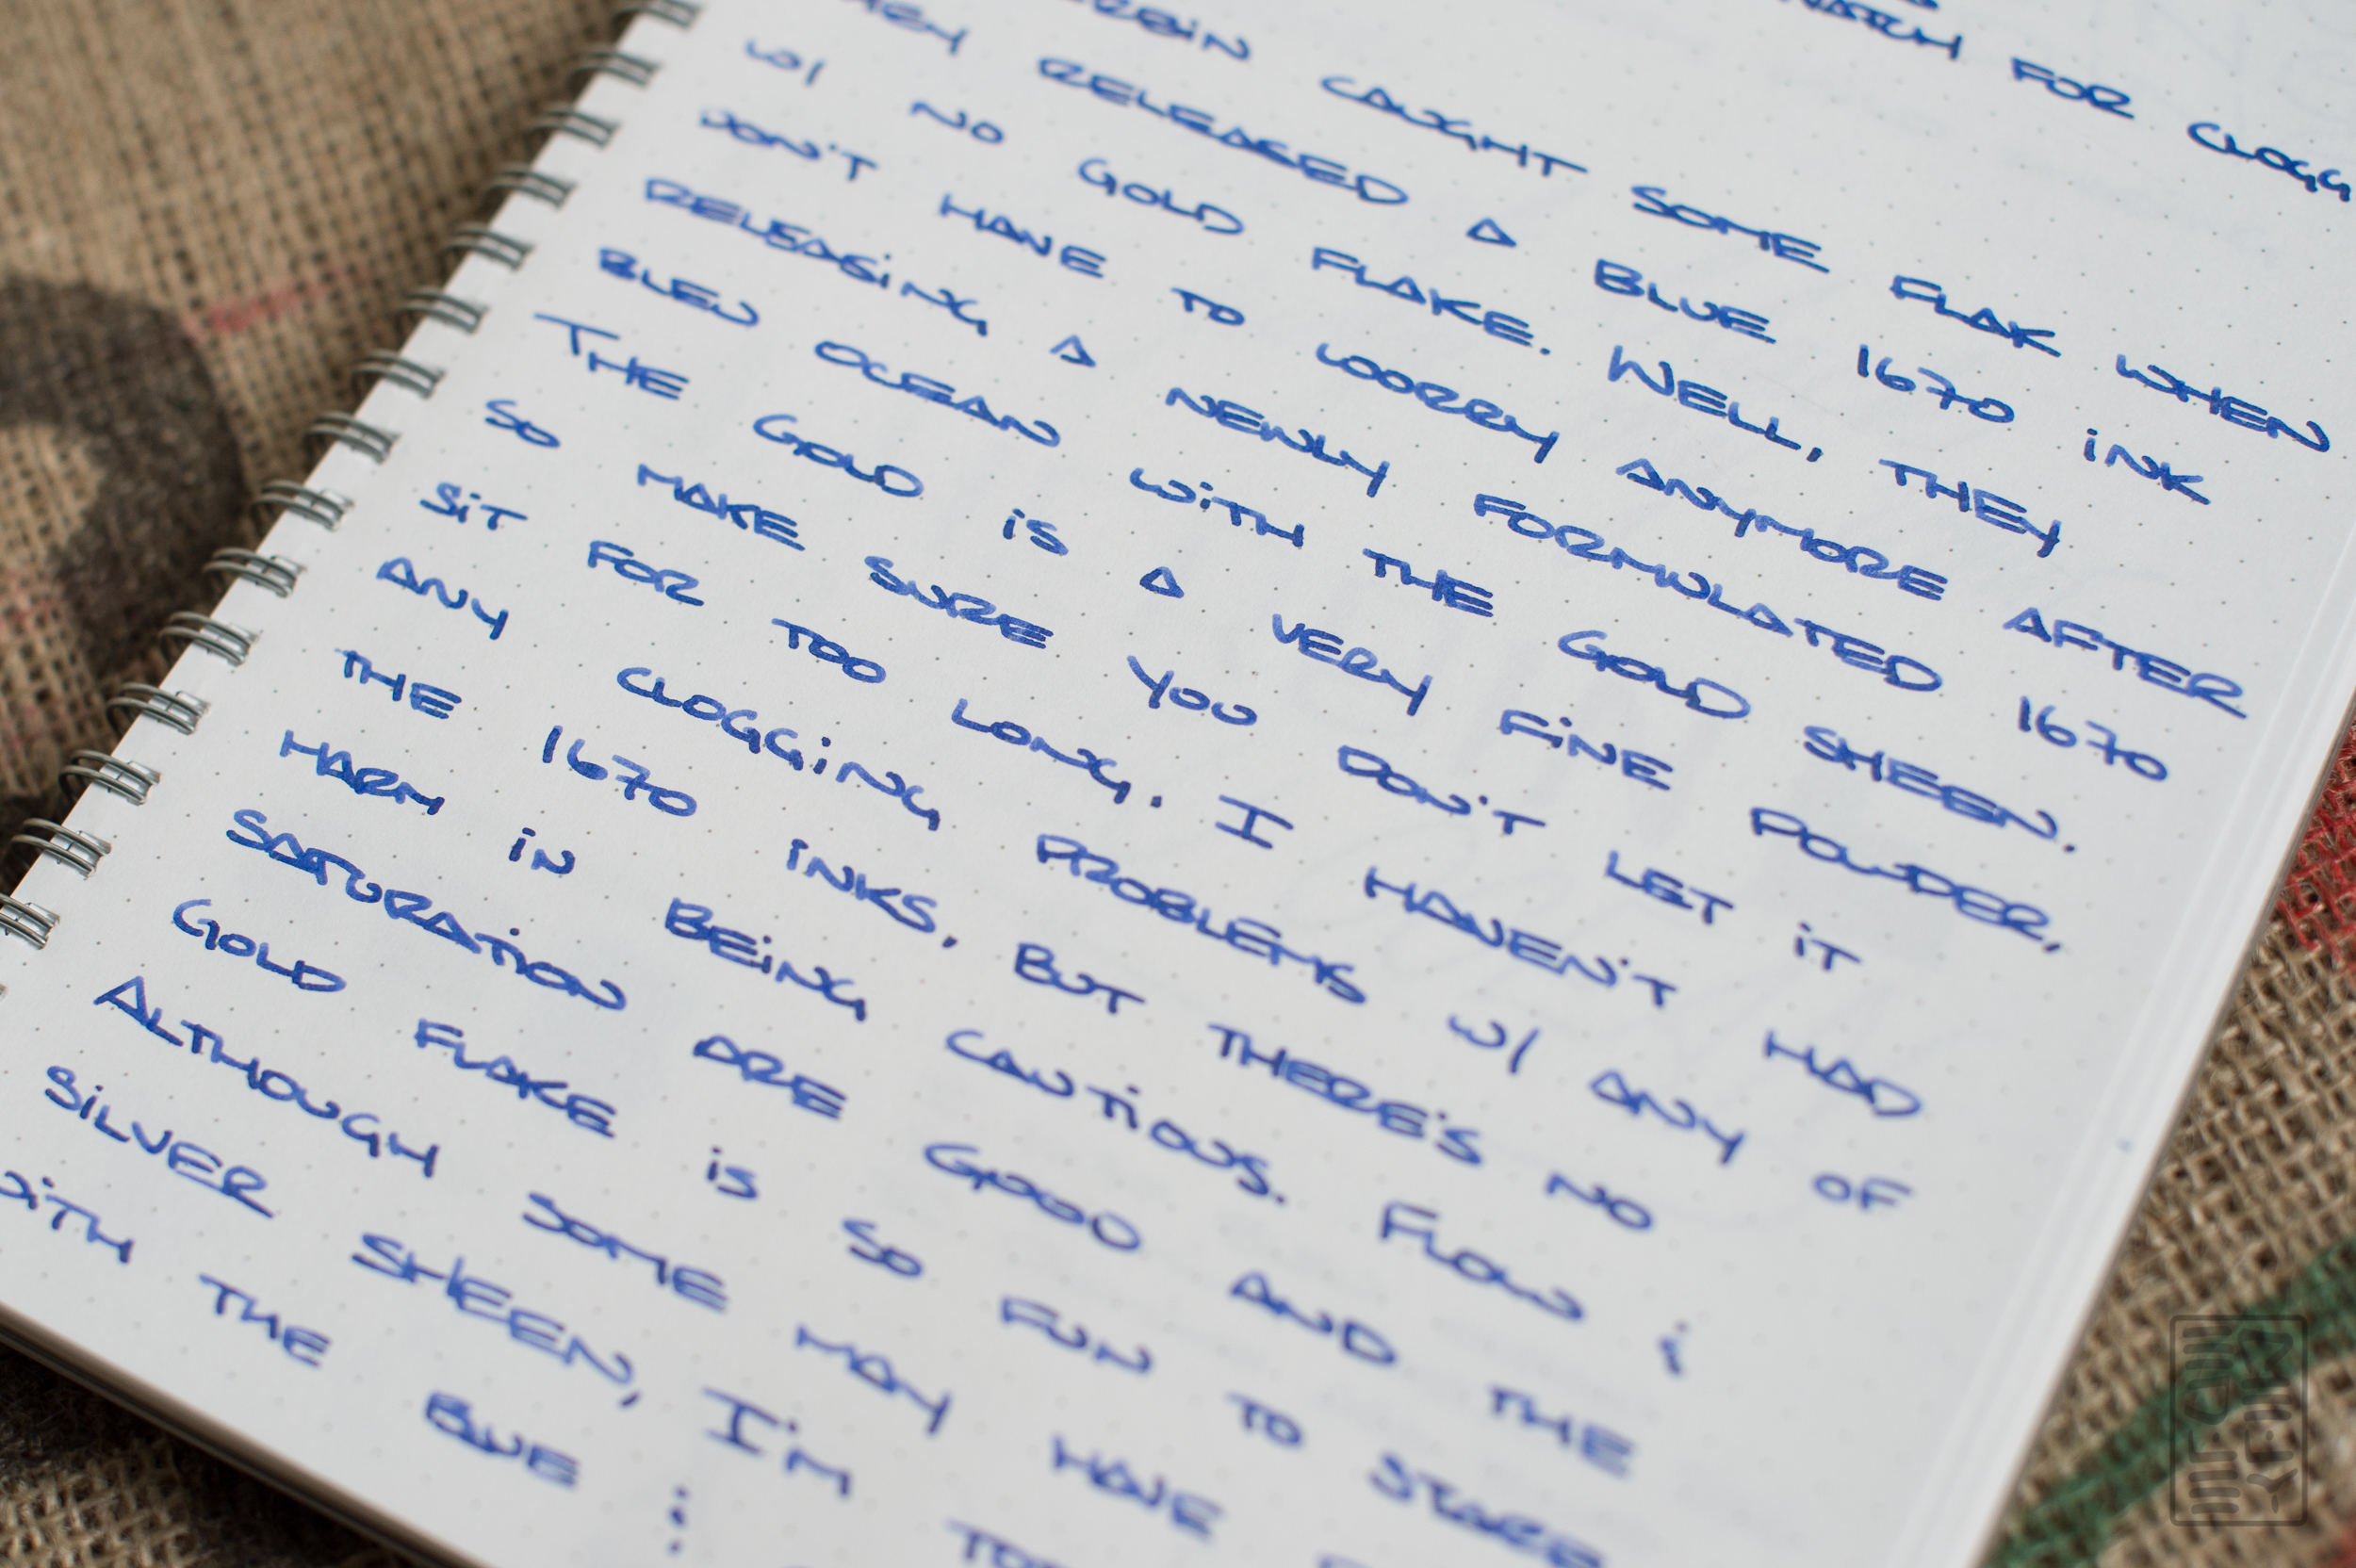 FOR CLOGG
CAUGHT SOME FLAK WHEN
RELEASED A BLUE 1670 INK
W/ NO GOLD FLAKE. WELL, THEY
DON'T HAVE TO WORRY ANYMORE AFTER
RELEASING A NEWLY FORMULATED 1670
BLEU OCEAN WITH THE GOLD SHEEN.
THE GOLD IS A VERY FINE POWDER,
SO MAKE SURE YOU DON'T LET IT
SIT FOR TOO LONG. I HAVEN'T HAD
ANY CLOGGING PROBLEMS W/ ANY OF
THE 1670 INKS, BUT THERE'S NO
HARM IN BEING CAUTIOUS. FLOW &
SATURATION ARE GOOD AND THE
GOLD FLAKE IS SO FUN TO STARE
ALTHOUGH SOME MAY HAVE
SILVER SHEEN, I'M
WITH THE BLUE &